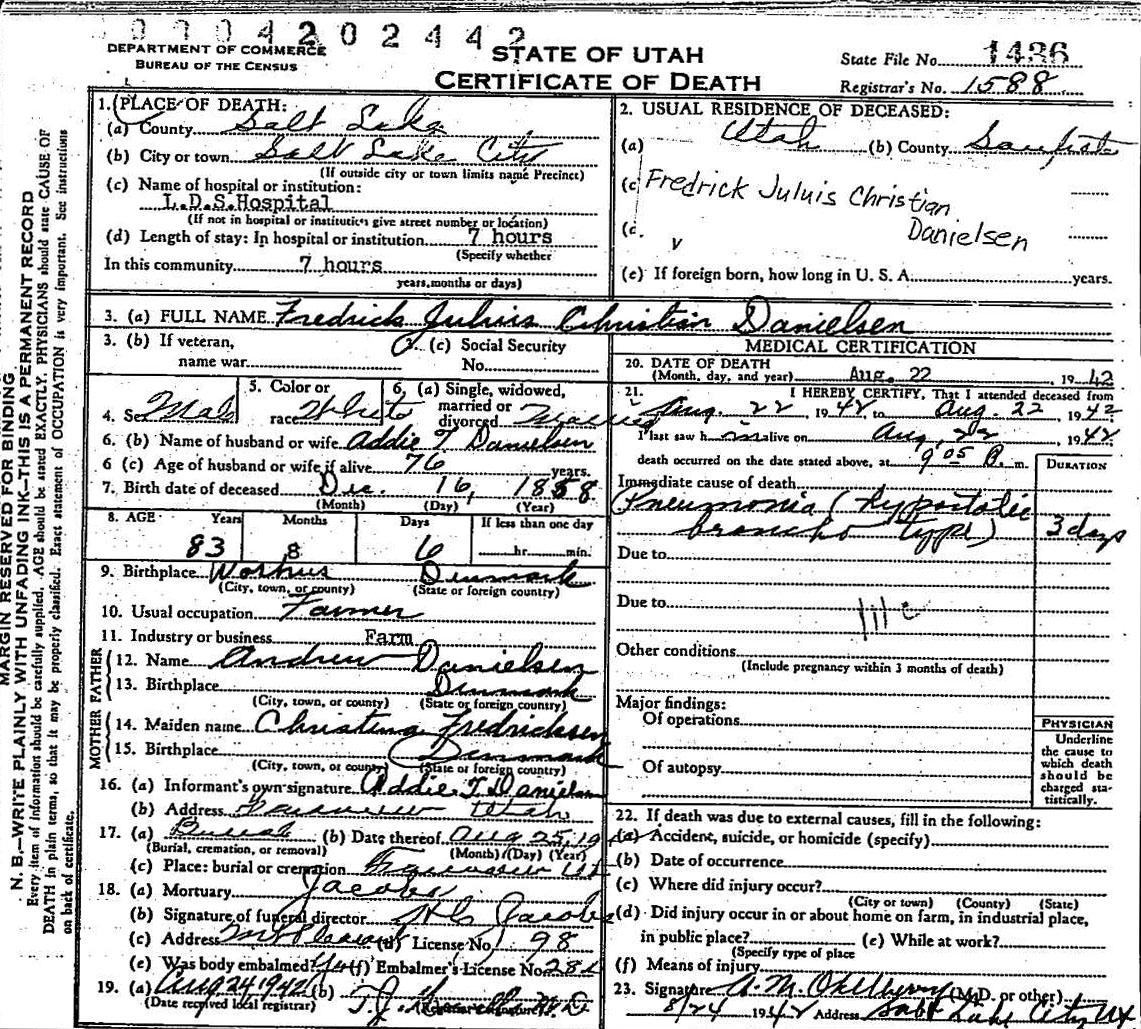 0704202442
DEPARTMENT OF COMMERCE
BUREAU OF THE CENSUS
STATE OF UTAH
CERTIFICATE OF DEATH
State File No. 1436
Registrar's No. 1588
MARGIN RESERVED FOR BINDING
N. B.—WRITE PLAINLY WITH UNFADING INK—THIS IS A PERMANENT RECORD
Every item of information should be carefully supplied. AGE should be stated EXACTLY. PHYSICIANS should state CAUSE OF
DEATH in plain terms, so that it may be properly classified. Exact statement of OCCUPATION is very important. See instructions
on back of certificate.
1. PLACE OF DEATH:
(a) County Salt Lake
(b) City or town Salt Lake City
(If outside city or town limits name Precinct)
(c) Name of hospital or institution:
L.D.S.Hospital
(If not in hospital or institution give street number or location)
(d) Length of stay: In hospital or institution 7 hours
(Specify whether
In this community 7 hours
years, months or days)
2. USUAL RESIDENCE OF DECEASED:
(a) Utah (b) County Sanpete
(c Fredrick Juluis Christian
Danielsen
(e) If foreign born, how long in U. S. A. years.
3. (a) FULL NAME Fredrick Juluis Christian Danielsen
3. (b) If veteran,
name war
(c) Social Security
No.
4. Sex Male
5. Color or
race White
6. (a) Single, widowed,
married or
divorced Married
6. (b) Name of husband or wife Addie T Danielsen
6 (c) Age of husband or wife if alive 76 years.
7. Birth date of deceased Dec. 16, 1858
(Month) (Day) (Year)
8. AGE Years Months Days If less than one day
83 8 6 hr. min.
9. Birthplace Denmark
(City, town, or county) (State or foreign country)
10. Usual occupation Farmer
11. Industry or business Farm
FATHER
12. Name Andrew Danielsen
13. Birthplace Denmark
(City, town, or county) (State or foreign country)
MOTHER
14. Maiden name Christina Fredricksen
15. Birthplace Denmark
(City, town, or county) (State or foreign country)
16. (a) Informant's own signature Addie T. Danielsen
(b) Address Fairview Utah
17. (a) Burial (b) Date thereof Aug 25, 19
(Burial, cremation, or removal) (Month) (Day) (Year)
(c) Place: burial or cremation Fairview Ut
18. (a) Mortuary Jacobs
(b) Signature of funeral director Jacobs
(c) Address Mt Pleasant (d) License No. 98
(e) Was body embalmed Yes (f) Embalmer's License No. 281
19. (a) Aug 24 1942 (b) T.J. M.D
(Date received local registrar)
MEDICAL CERTIFICATION
20. DATE OF DEATH
(Month, day, and year) Aug. 22, 1942
21. I HEREBY CERTIFY, That I attended deceased from
Aug. 22, 1942 to Aug. 22 1942
I last saw him alive on Aug, 22 1942
death occurred on the date stated above, at 9 05 P. m.
DURATION
Immediate cause of death
Pneumonia (hypostatic
broncho type) 3 days
Due to
Due to
111 c
Other conditions
(Include pregnancy within 3 months of death)
Major findings:
Of operations
Of autopsy
PHYSICIAN
Underline
the cause to
which death
should be
charged sta-
tistically.
22. If death was due to external causes, fill in the following:
(a) Accident, suicide, or homicide (specify)
(b) Date of occurrence
(c) Where did injury occur?
(City or town) (County) (State)
(d) Did injury occur in or about home on farm, in industrial place,
in public place? (e) While at work?
(Specify type of place
(f) Means of injury
23. Signature A. M. Okelberry (M.D. or other)
8/24 1942 Address Salt Lake City Ut